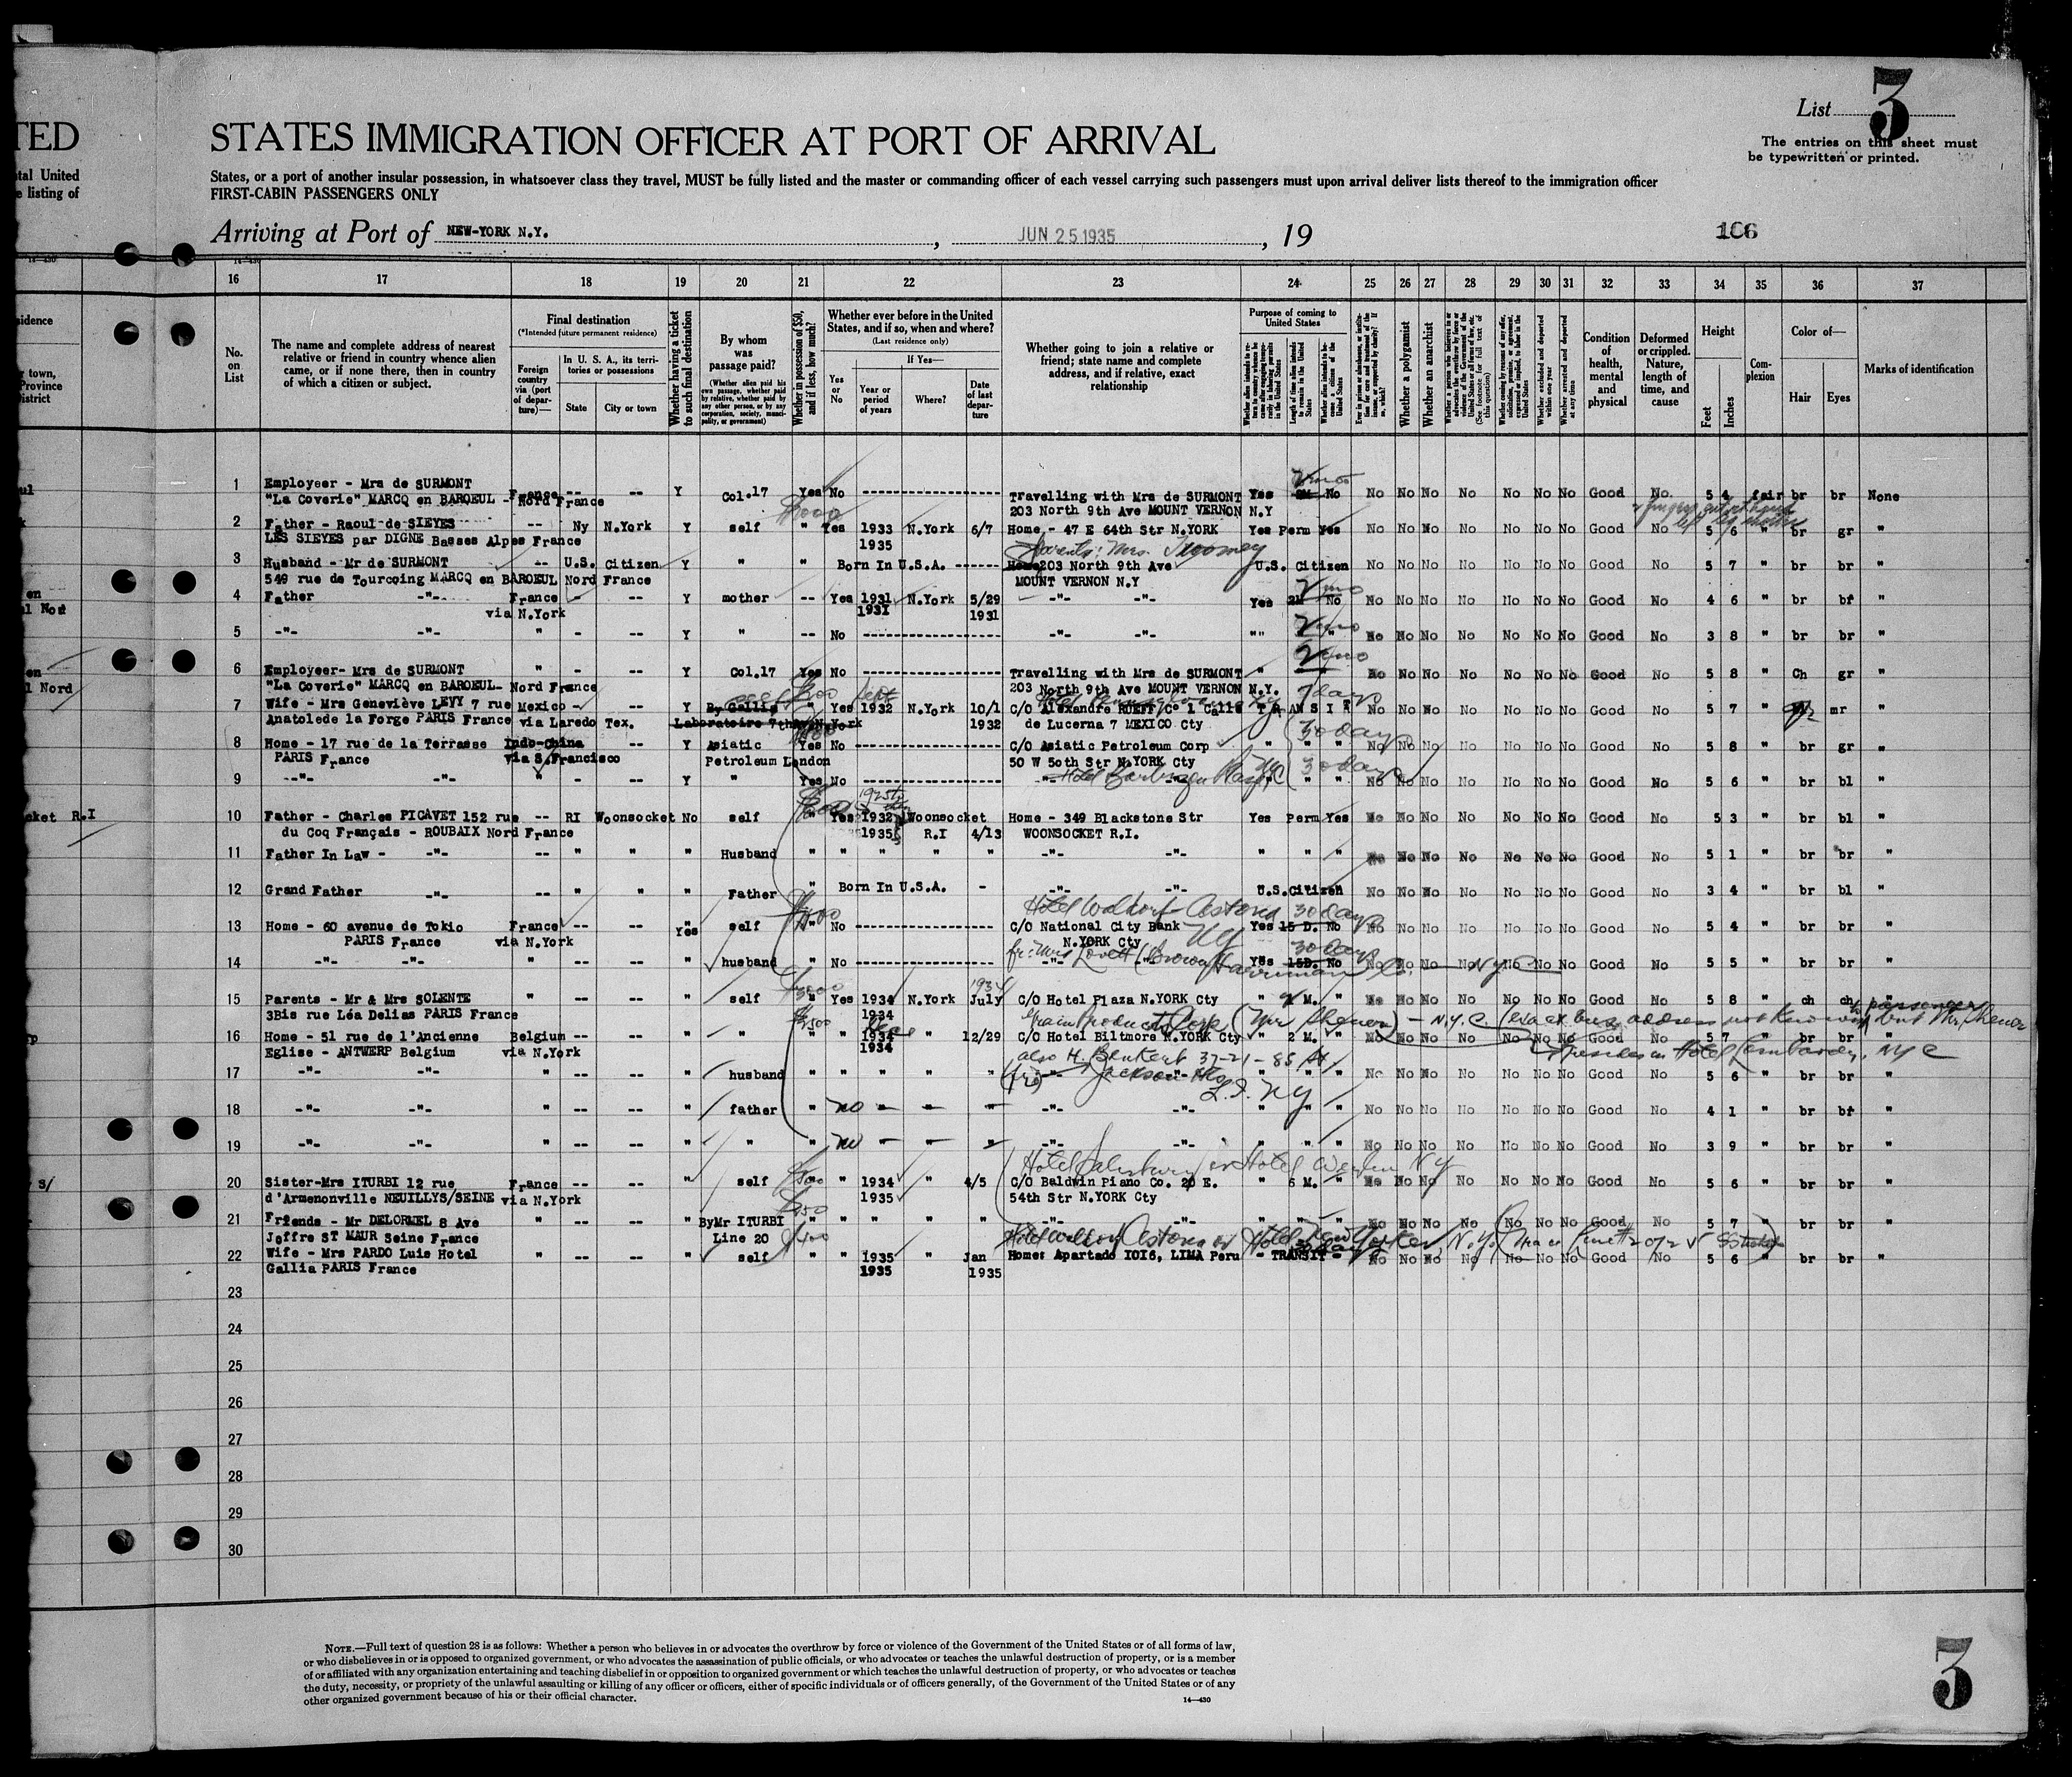 List 3
TED STATES IMMIGRATION OFFICER AT PORT OF ARRIVAL
The entries on this sheet must
be typewritten or printed.
tal United States, or a port of another insular possession, in whatsoever class they travel, MUST be fully listed and the master or commanding officer of each vessel carrying such passengers must upon arrival deliver lists thereof to the immigration officer
e listing of FIRST-CABIN PASSENGERS ONLY
Arriving at Port of NEW-YORK N.Y. , JUN 25 1935 , 19
106
16 17 18 19 20 21 22 23 24 25 26 27 28 29 30 31 32 33 34 35 36 37
No. on List
The name and complete address of nearest relative or friend in country whence alien came, or if none there, then in country of which a citizen or subject.
Final destination
(*Intended future permanent residence)
Foreign country via (port of departure)—
In U. S. A., its territories or possessions
State
City or town
Whether having a ticket to such final destination
By whom was passage paid?
(Whether alien paid his own passage, whether paid by relative, whether paid by any other person, or by any corporation, society, municipality, or government)
Whether in possession of $50, and if less, how much?
Whether ever before in the United States, and if so, when and where?
(Last residence only)
Yes or No
If Yes—
Year or period of years
Where?
Date of last departure
Whether going to join a relative or friend; state name and complete address, and if relative, exact relationship
Purpose of coming to United States
Length of time alien intends to remain in the United States
Whether alien intends to become a citizen of the United States
Whether a polygamist
Whether an anarchist
Whether excluded and deported within one year
Whether arrested and deported at any time
Condition of health, mental and physical
Deformed or crippled. Nature, length of time, and cause
Height
Feet
Inches
Complexion
Color of—
Hair
Eyes
Marks of identification
1 Employeer - Mrs de SURMONT France -- -- Y Col.17 Yes No Travelling with Mrs de SURMONT Yes 2M No No No No No No No No Good No 5 4 fair br br None
"La Coverie" MARCQ en BAROEUL - Nord France 203 North 9th Ave MOUNT VERNON N.Y
2 Father - Raoul de SIEYES -- Ny N.York Y self " Yes 1933 N.York 6/7 Home - 47 E 64th Str N.YORK Yes Perm Yes No No No No No No No Good No 5 6 " br gr "
LES SIEYES par DIGNE Basses Alpes France 1935
3 Husband - Mr de SURMONT -- U.S. Citizen Y " " Born In U.S.A. Home 203 North 9th Ave U.S. Citizen No No No No No No No Good No 5 7 " br br "
549 rue de Tourcoing MARCQ en BAROEUL Nord France MOUNT VERNON N.Y
4 Father -"- France - -- Y mother -- Yes 1931 N.York 5/29 -"- -"- Yes 2M No No No No No No No No Good No 4 6 " br br "
via N.York 1931 1931
5 -"- -"- " - -- Y " -- No -"- -"- "" " No No No No No No No Good No 3 8 " br br "
6 Employeer- Mrs de SURMONT " - -- Y Col.17 Yes No Travelling with Mrs de SURMONT " No No No No No No No Good No 5 8 " Ch gr "
"La Coverie" MARCQ en BAROEUL- Nord France 203 North 9th Ave MOUNT VERNON N.Y.
7 Wife - Mrs Geneviève LEVY 7 rue Mexico - -- Y By Gallia " Yes 1932 N.York 10/1 C/O Alexandre RUEFF/Co 1 Calle TRANSIT No No No No No No No Good No 5 7 " mr "
Anatolede la Forge PARIS France via Laredo Tex. Laboratoire 7th Av N.York 1932 de Lucerna 7 MEXICO Cty
8 Home - 17 rue de la Terrasse Indo-China -- Y Asiatic Yes No C/O Asiatic Petroleum Corp " " " 30 days No No No No No No No Good No 5 8 " br gr "
PARIS France via S.Francisco Petroleum London 50 W 50th Str N.YORK Cty
9 -"- -"- " - -- Y " Yes No Hotel Barbizon Plaza " " 30 days No No No No No No No Good No 5 6 " br bl "
10 Father - Charles PICAVET 152 rue -- RI Woonsocket No self " Yes 1932 Woonsocket Home - 349 Blackstone Str Yes Perm Yes No No No No No No No Good No 5 3 " br bl "
du Coq Français - ROUBAIX Nord France 1935 R.I 4/13 WOONSOCKET R.I.
11 Father In Law - -"- -- " " " Husband " " " " " -"- -"- " " " No No No No No No No Good No 5 1 " br br "
12 Grand Father -"- -- " " " Father " Born In U.S.A. - -"- -"- U.S.Citizen No No No No No No No Good No 3 4 " br bl "
Hotel Waldorf Astoria 30 days
13 Home - 60 avenue de Tokio France -- -- Yes self " No C/O National City Bank Yes 15 D. No No No No No No No No Good No 5 4 " br br "
PARIS France via N.York N.YORK Cty NY 30 days
14 -"- -"- " -- -- " husband " No -"- Yes 15D. No No No No No No No No Good No 5 5 " br br "
15 Parents - Mr & Mrs SOLENTE " -- -- " self " Yes 1934 N.York July C/O Hotel Plaza N.YORK Cty " 2 M. " No No No No No No No Good No 5 8 " ch ch "
3Bis rue Léa Delias PARIS France 1934
16 Home - 51 rue de l'Ancienne Belgium -- -- " " " " 1934 " 12/29 C/O Hotel Biltmore N.YORK Cty " 2 M. " No No No No No No No Good No 5 7 " br br "
Eglise - ANTWERP Belgium via N.York 1934 also H. Benkert 37-21-85 St.
17 -"- -"- " -- -- " husband " " " " " Jackson Hts " " " No No No No No No No Good No 5 6 " br br "
L.I. NY
18 -"- -"- " -- -- " father " no - - - -"- -"- " " " No No No No No No No Good No 4 1 " br br "
19 -"- -"- " -- -- " " " no - - - -"- -"- " " " No No No No No No No Good No 3 9 " br br "
20 Sister-Mrs ITURBI 12 rue France -- -- " self " " 1934 " 4/5 C/O Baldwin Piano Co. 20 E. " 6 M. " No No No No No No No Good No 5 6 " br br "
d'Armenonville NEUILLYS/SEINE via N.York 1935 54th Str N.YORK Cty
21 Friends - Mr DELORMEL 8 Ave " -- -- " ByMr ITURBI " " " " " -"- -"- " " " No No No No No No No Good No 5 7 " br br "
Joffre ST MAUR Seine France Line 20 Hotel Waldorf Astoria or Hotel New Yorker, N.Y.
22 Wife - Mrs PARDO Luis Hotel " -- -- " self " " 1935 " Jan Home: Apartado 1016, LIMA Peru - TRANSIT - No No No No No No No Good No 5 6 " br br "
Gallia PARIS France 1935 1935
23
24
25
26
27
28
29
30
NOTE.—Full text of question 28 is as follows: Whether a person who believes in or advocates the overthrow by force or violence of the Government of the United States or of all forms of law,
or who disbelieves in or is opposed to organized government, or who advocates the assassination of public officials, or who advocates or teaches the unlawful destruction of property, or is a member
of or affiliated with any organization entertaining and teaching disbelief in or opposition to organized government or which teaches the unlawful destruction of property, or who advocates or teaches
the duty, necessity, or propriety of the unlawful assaulting or killing of any officer or officers, either of specific individuals or of officers generally, of the Government of the United States or of any
other organized government because of his or their official character.
14—430
3